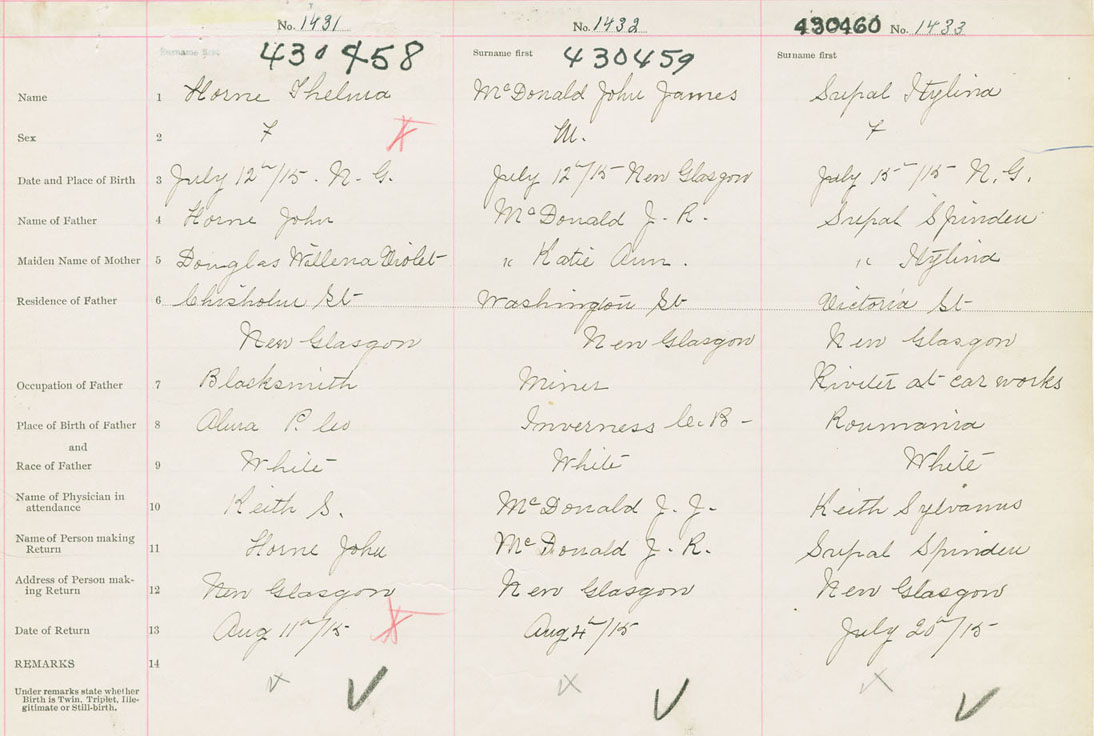 No. 1431 No. 1432 430460 No. 1433
Surname first 430458 Surname first 430459 Surname first
Name 1 Horne Thelma McDonald John James Supal Itylina
Sex 2 F M. F
Date and Place of Birth 3 July 12th/15. N. G. July 12th/15 New Glasgow July 15th/15 N. G.
Name of Father 4 Horne John McDonald J. R. Supal Spinden
Maiden Name of Mother 5 Douglas Willena Violet " Katie Ann. " Itylina
Residence of Father 6 Chisholm St Washington St Victoria St
New Glasgow New Glasgow New Glasgow
Occupation of Father 7 Blacksmith Miner Riveter at car works
Place of Birth of Father 8 Alma P. Co Inverness C. B- Roumania
and
Race of Father 9 White White White
Name of Physician in
attendance 10 Keith S. McDonald J. J. Keith Sylvanus
Name of Person making
Return 11 Horne John McDonald J. R. Supal Spinden
Address of Person mak-
ing Return 12 New Glasgow New Glasgow New Glasgow
Date of Return 13 Aug 11th/15 Aug 4th/15 July 20th/15
REMARKS 14
Under remarks state whether
Birth is Twin, Triplet, Ille-
gitimate or Still-birth.